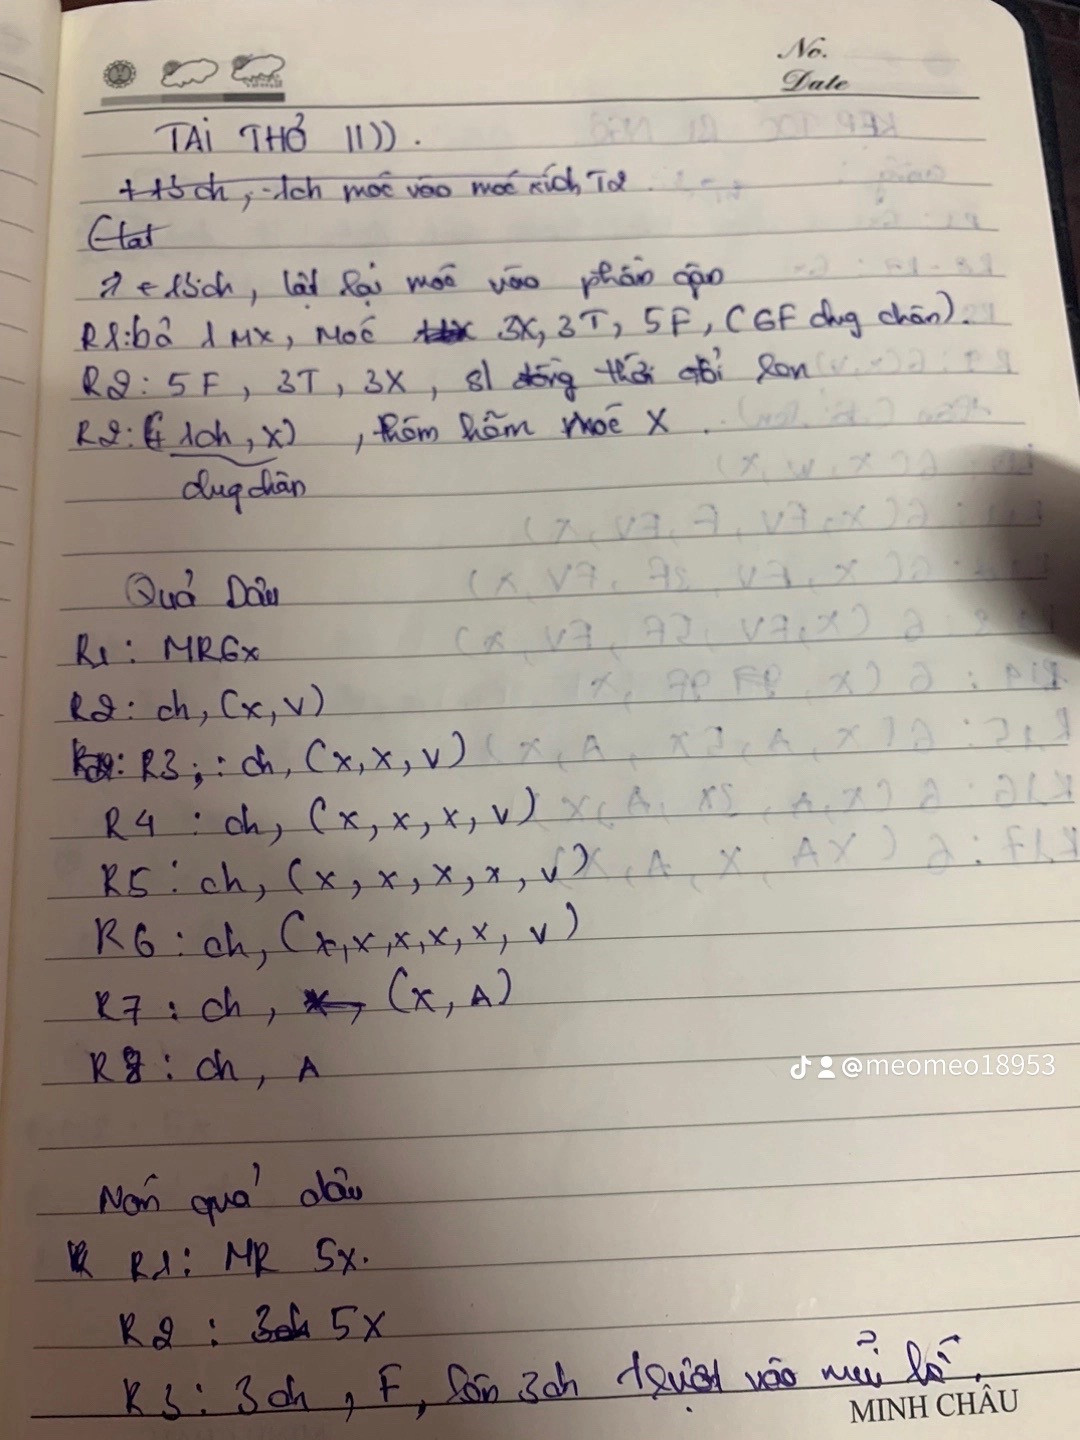 No.
Date
TAI THỎ 11)).
15ch, 1ch móc vào móc xích T2
Etat
15ch, lật lại móc vào phần gân
R1: bỏ 1 MX, Móc 3X, 3T, 5F, (6F dựng chân).
R2: 5F, 3T, 3X, sl
R2: (1ch, X) , móc X.
dựng chân
Quả Dâu
R1: MR6x
R2: ch, (x, v)
R3: ch, (x, x, v)
R4: ch, (x, x, x, v)
R5: ch, (x, x, x, x, v)
R6: ch, (x, x, x, x, x, v)
R7: ch, (x, A)
R8: ch, A
Nón quả dâu
R1: MR 5x.
R2: 5X
R3: 3ch, F, lên 3ch trượt vào mũi
MINH CHÂU
@meomeo18953